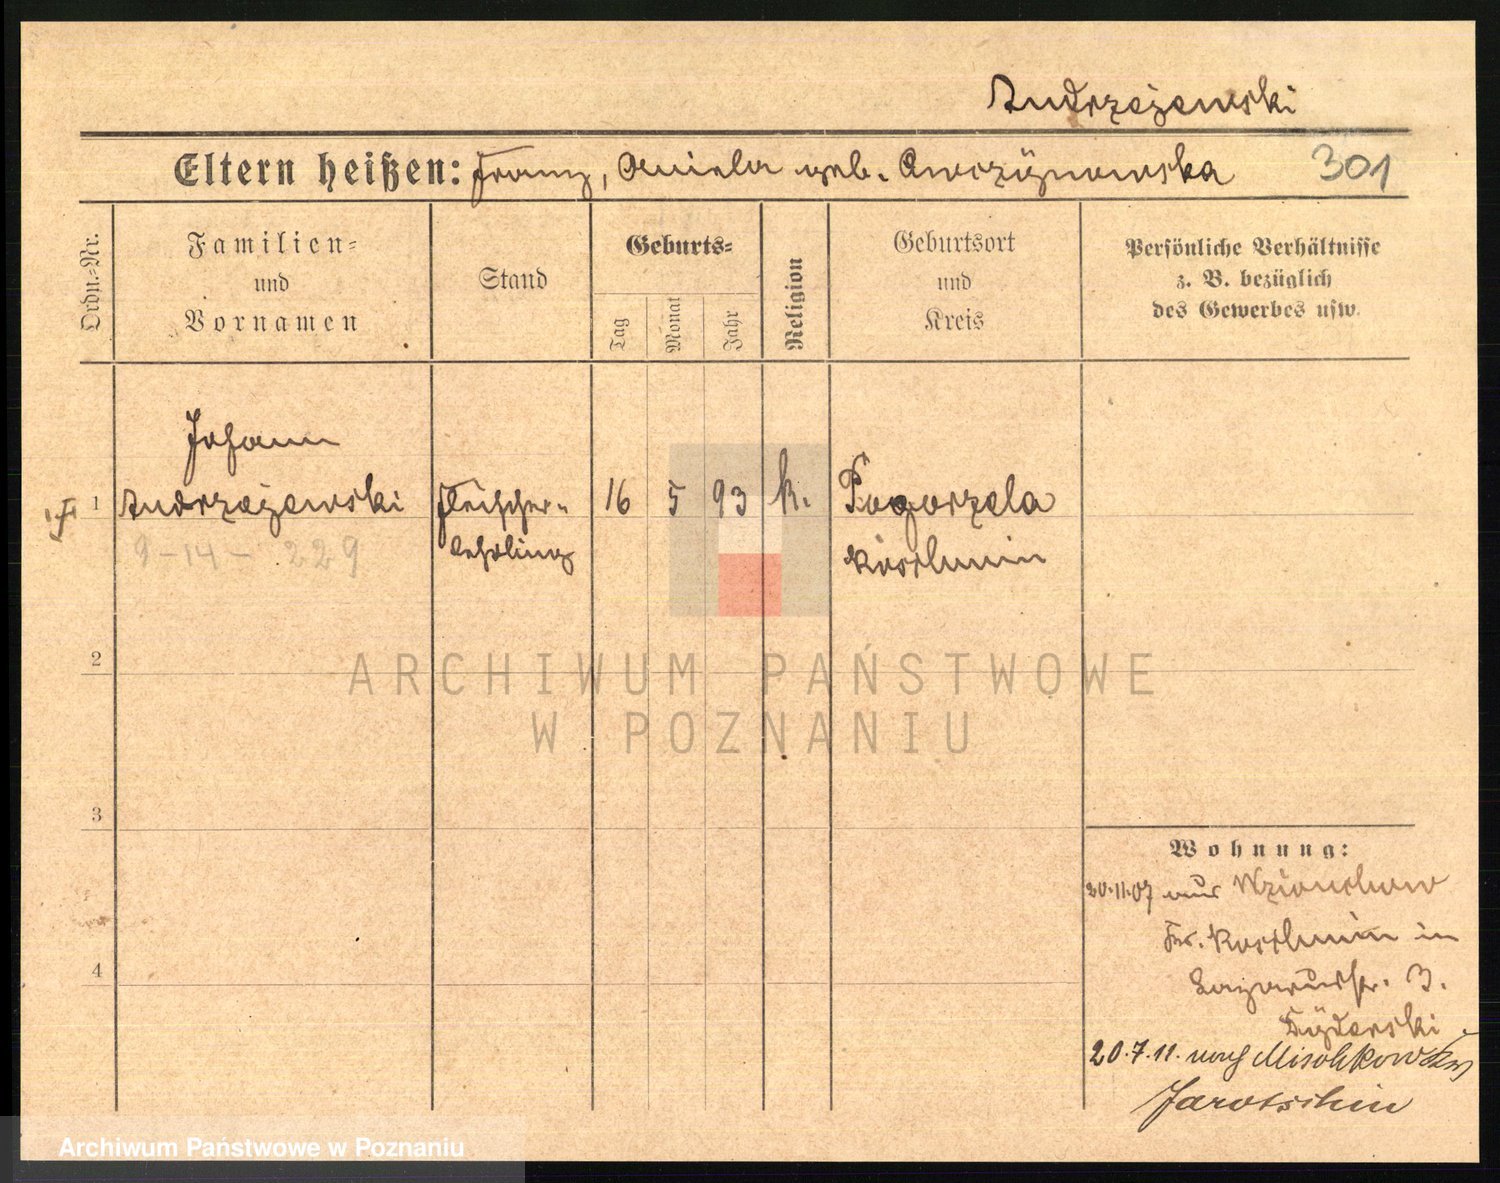 Andrzejewski
Eltern heißen: Franz, Aniela geb.
301
Ordn.-Nr.
Familien-
und
Vornamen
Stand
Geburts-
Tag
Monat
Jahr
Religion
Geburtsort
und
Kreis
Persönliche Verhältnisse
z. B. bezüglich
des Gewerbes usw.
Johann
1 Andrzejewski Fleischer- 16 5 93 k. Pogorzela
lehrling Koschmin
9-14-229
2
3
4
ARCHIWUM PAŃSTWOWE
W POZNANIU
Wohnung:
20.11.07 aus
Kr. Koschmin in
Lazarusstr. 3.
20.7.11. nach
Jarotschin
Archiwum Państwowe w Poznaniu